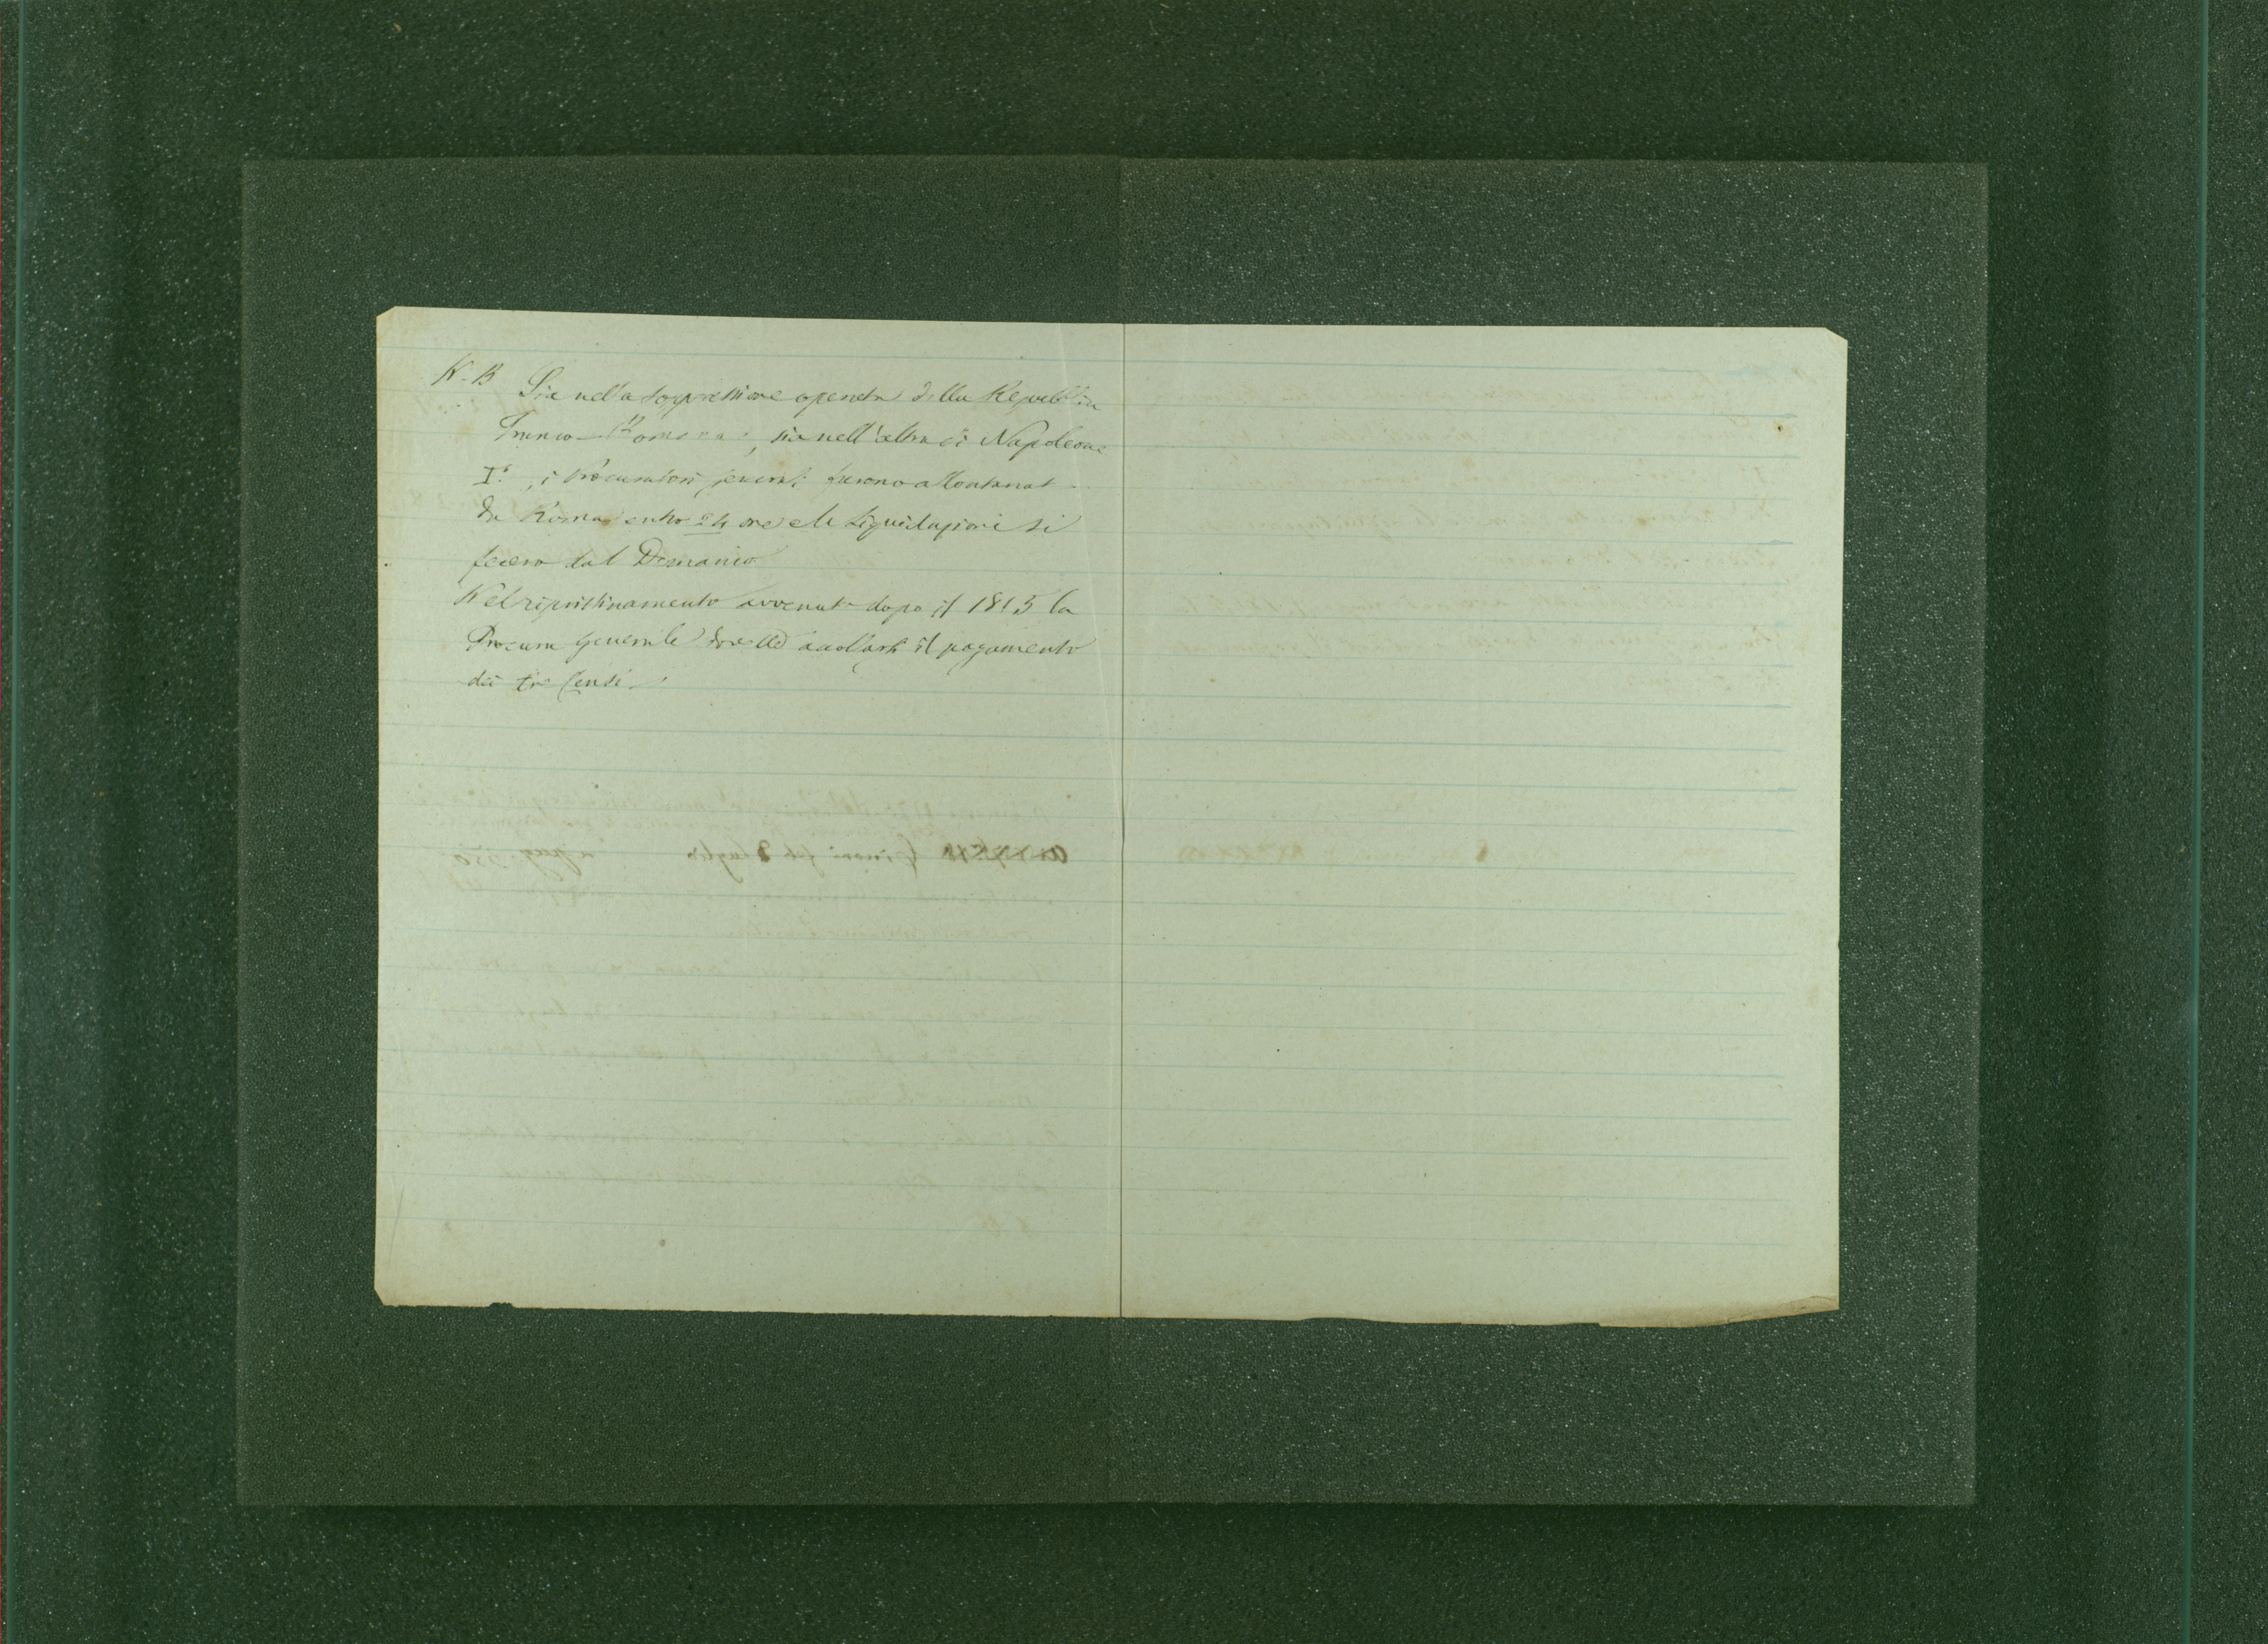 N. B Sia nella soppressione operata dalla Repubblica
Franco-Romana, sia nell'altra di Napoleone
I°, i Procuratori generali furono allontanati
da Roma entro 24 ore e le liquidazioni si
fecero dal Demanio
Nel ripristinamento avvenuto dopo il 1815 la
Procura generale dovette accollarsi il pagamento
dei tre Censi.